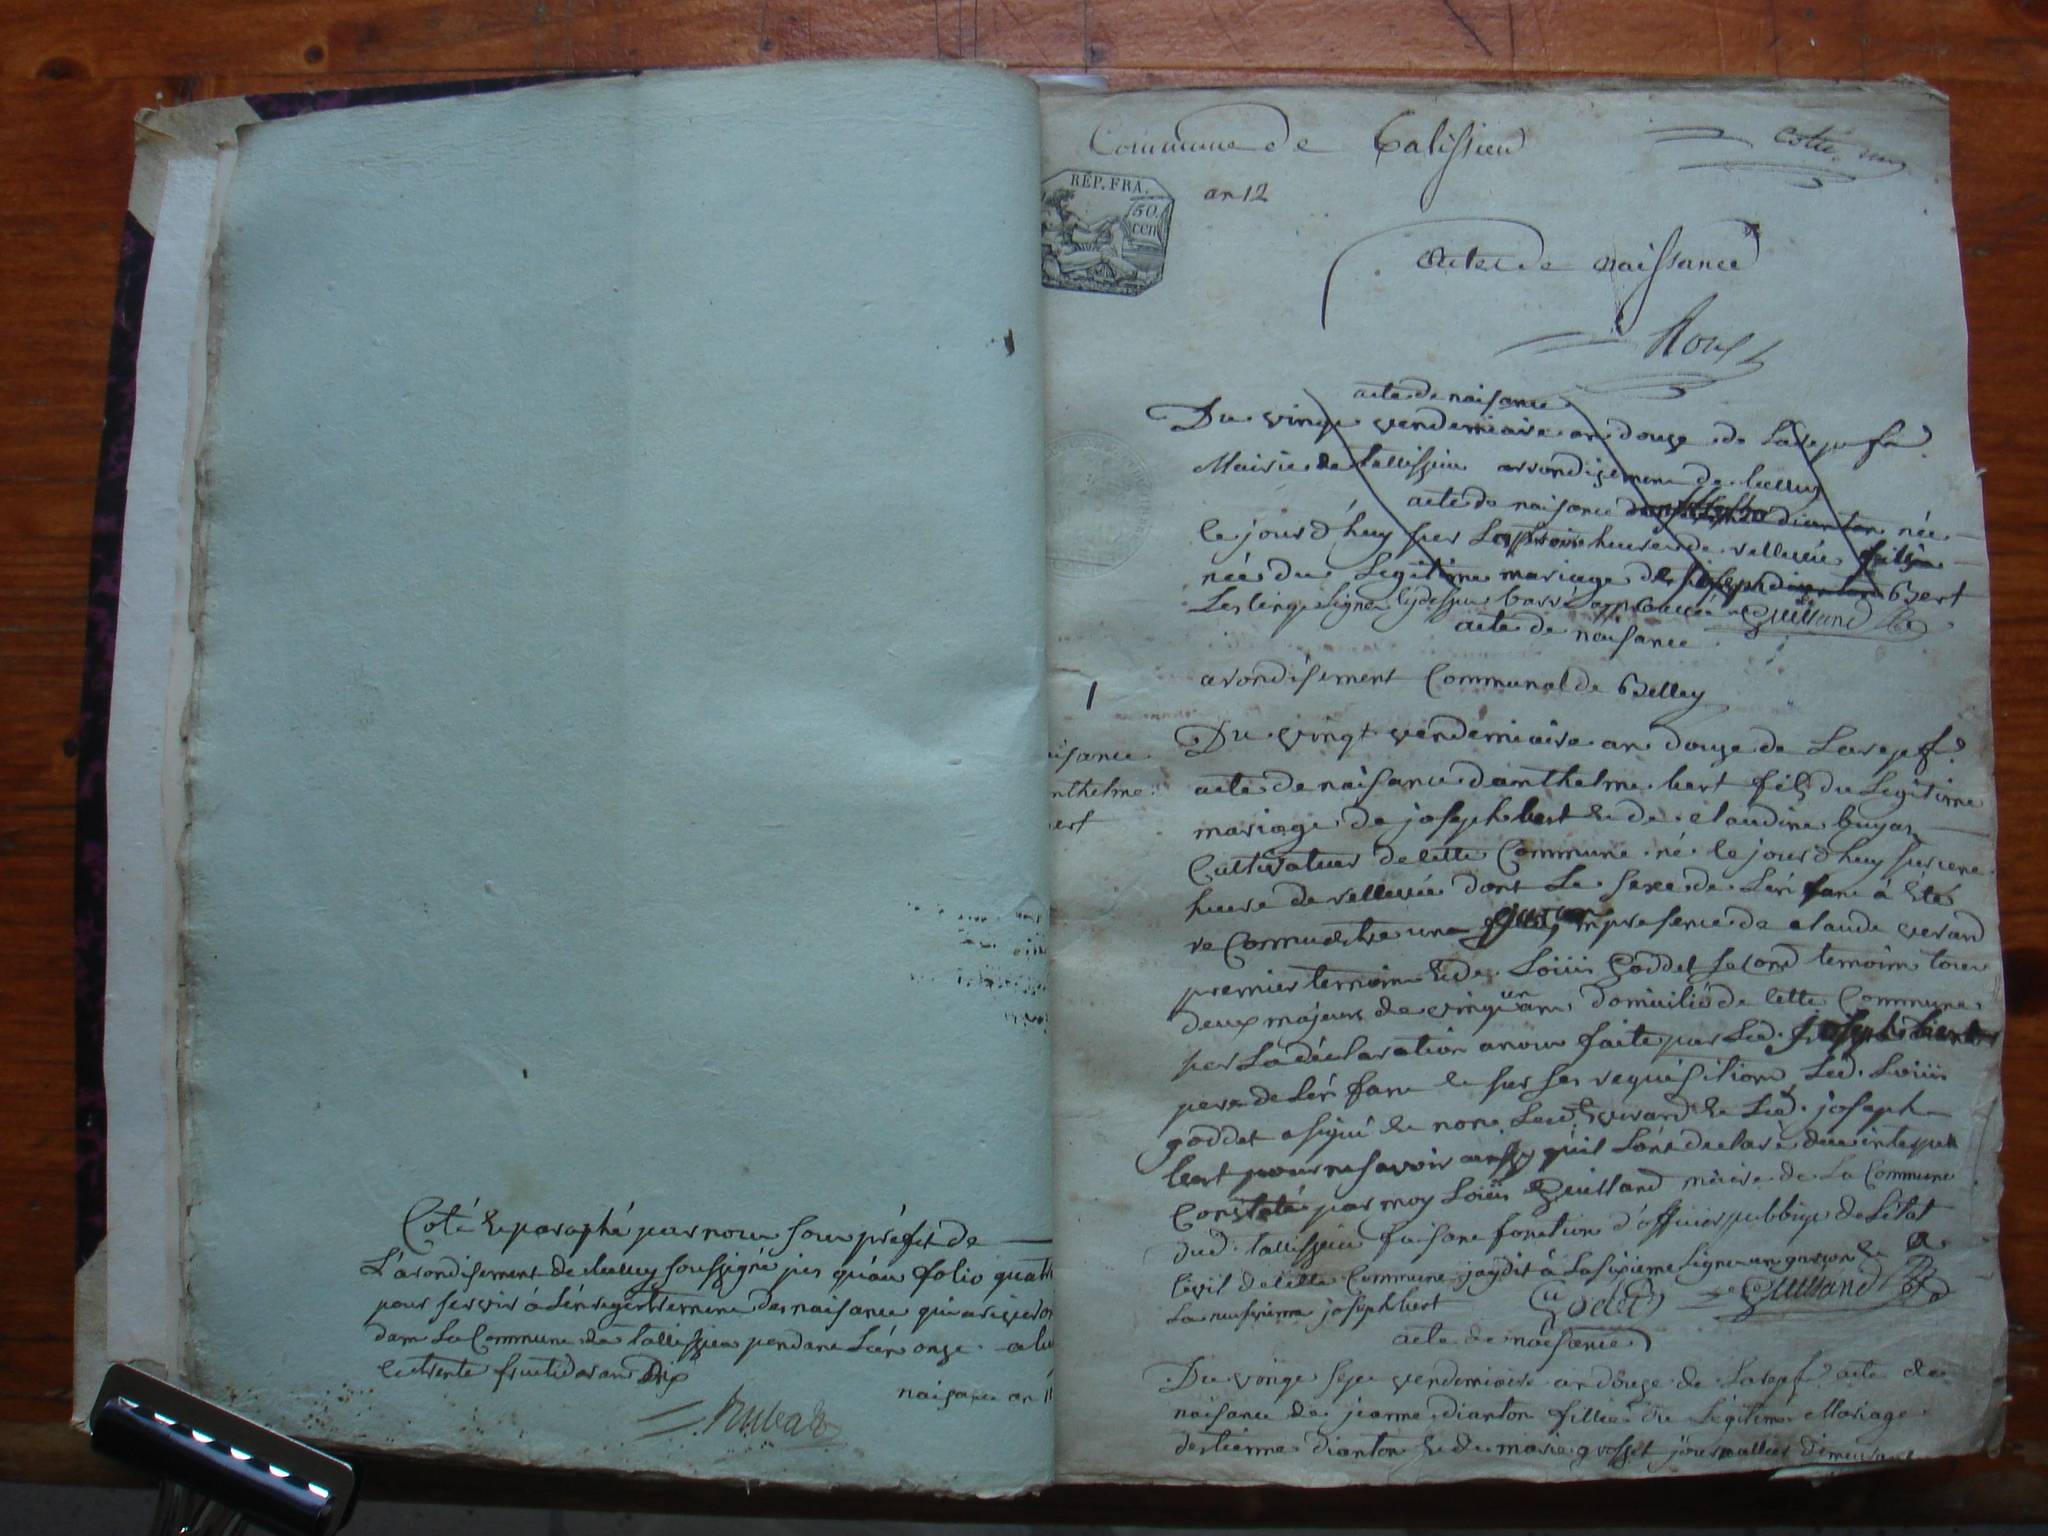 Coté & paraphé par nous sous préfet de
L'arondisement de belley soussigné jus qu'au folio quatr
pour servir à L'enregistrement des naisance qui ariveron
dans La Commune de tallissieu pendant L'an onze.
le trente fructidor an Dix
naisance an 11
Commune de Talissieu
cotte un
RÉP. FRA.
50 cen
an 12
acte de naissance
Roux
acte de naisance
Du vingt vendemiaire an douze de La rep fr
Mairie de tallissieu arrondisement de belley
acte de naisance dianton née
le jourd'huy sur Les heure de rellevée
née du Legitime mariage de joseph dianton Bert
Les cinq Ligne cy dessus barré approuvée Guilland
acte de naisance
arondisement Communal de Belley
1
Du vingt vendemiaire an douze de La rep f.
isance
nthelme
ert
acte de naisance d'anthelme bert fils du Legitime
mariage de joseph bert & de claudine buyat
Cultivateur de cette Commune né le jourd'huy sur une
heure de rellevée dont Le sexe de L'en fant à été
re Connu être une en presence de claude verand
premier temoin & de Loüis goddet second temoin tous
deux majeurs de vingt un ans domicilié de cette Commune
per La déclaration a nous faite par Led. joseph bert
pere de L'en fant & sur ses requisitions Led. Loüis
goddet a signé & non Led. verand & Led. joseph
bert pour ne savoir ainsy qu'il L'ont declaré de
Constaté par moy Loüis Guilland maire de La Commune
dud. tallissieu faisant fonction d'officier publique de L'état
Civil de cette Commune jaydit à La sixieme Ligne un garson &
La neuvieme joseph bert Godet Guilland
acte de naisance
Du vingt sept vendemiaire an douze de La rep f acte de
naisance de jeanne dianton fillie du Légitime Mariage
destienne dianton & de marie grosset journallier demeurant